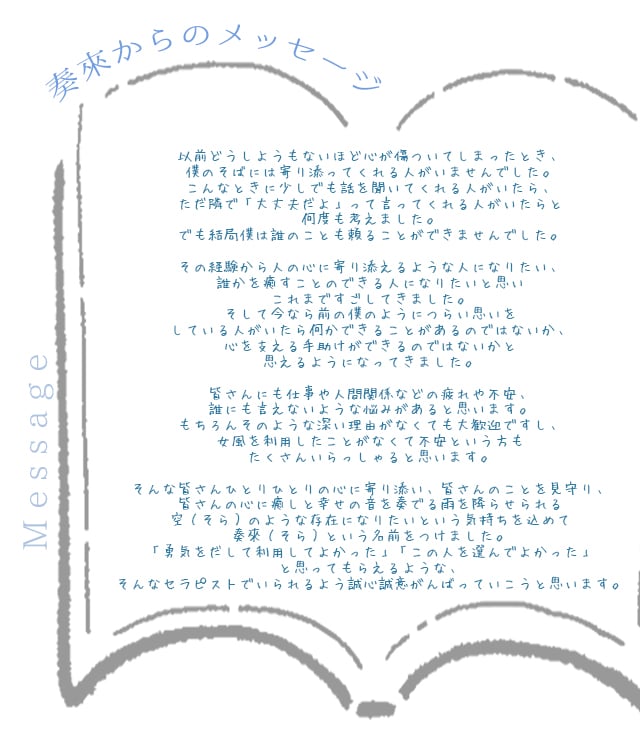 奏來からのメッセージ
以前どうしようもないほど心が傷ついてしまったとき、
僕のそばには寄り添ってくれる人がいませんでした。
こんなときに少しでも話を聞いてくれる人がいたら、
ただ隣で「大丈夫だよ」って言ってくれる人がいたらと
何度も考えました。
でも結局僕は誰のことも頼ることができませんでした。
その経験から人の心に寄り添えるような人になりたい、
誰かを癒すことのできる人になりたいと思い
これまですごしてきました。
そして今なら前の僕のようにつらい思いを
している人がいたら何かできることがあるのではないか、
心を支える手助けができるのではないかと
思えるようになってきました。
皆さんにも仕事や人間関係などの疲れや不安、
誰にも言えないような悩みがあると思います。
もちろんそのような深い理由がなくても大歓迎ですし、
女風を利用したことがなくて不安という方も
たくさんいらっしゃると思います。
そんな皆さんひとりひとりの心に寄り添い、皆さんのことを見守り、
皆さんの心に癒しと幸せの音を奏でる雨を降らせられる
空(そら)のような存在になりたいという気持ちを込めて
奏來(そら)という名前をつけました。
「勇気をだして利用してよかった」「この人を選んでよかった」
と思ってもらえるような、
そんなセラピストでいられるよう誠心誠意がんばっていこうと思います。
Message